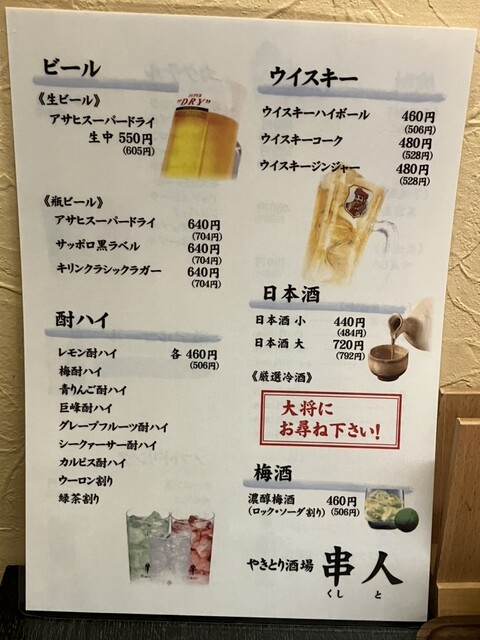 ビール
《生ビール》
アサヒスーパードライ
生中 550円
(605円)
SUPER
"DRY"
《瓶ビール》
アサヒスーパードライ 640円
(704円)
サッポロ黒ラベル 640円
(704円)
キリンクラシックラガー 640円
(704円)
酎ハイ
レモン酎ハイ 各 460円
(506円)
梅酎ハイ
青りんご酎ハイ
巨峰酎ハイ
グレープフルーツ酎ハイ
シークァーサー酎ハイ
カルピス酎ハイ
ウーロン割り
緑茶割り
ウイスキー
ウイスキーハイボール 460円
(506円)
ウイスキーコーク 480円
(528円)
ウイスキージンジャー 480円
(528円)
日本酒
日本酒 小 440円
(484円)
日本酒 大 720円
(792円)
《厳選冷酒》
大将に
お尋ね下さい!
梅酒
濃醇梅酒 460円
(ロック・ソーダ割り) (506円)
やきとり酒場 串人
くし と